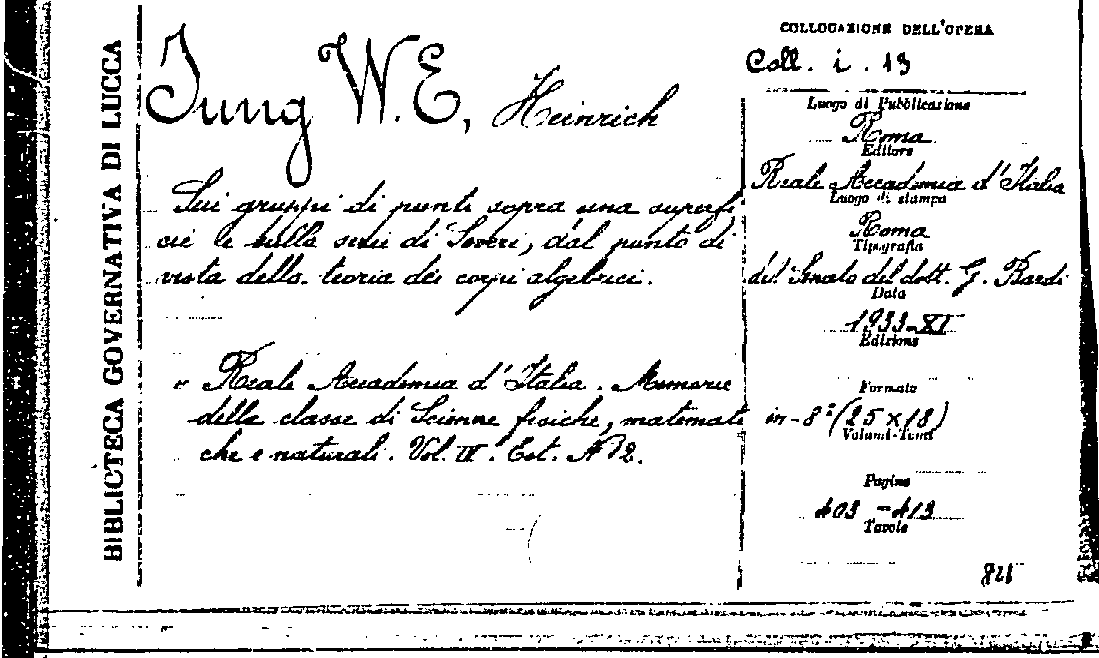 BIBLIOTECA GOVERNATIVA DI LUCCA
Jung W. E, Heinrich
Sui gruppi di punti sopra una superfi-
cie e sulla serie di Severi, dal punto di
vista della teoria dei corpi algebrici.
" Reale Accademia d'Italia. Memorie
della classe di Scienze fisiche, matemati
che e naturali. Vol. IV. Est. N 12.
COLLOCAZIONE DELL'OPERA
Coll. i. 13
Luogo di Pubblicazione
Roma
Editore
Reale Accademia d'Italia
Luogo di stampa
Roma
Tipografia
del Senato del dott. G. Bardi
Data
1933-XI
Edizione
Formato
in-8º (25 x 18)
Volumi-Tomi
Pagine
403 - 413
Tavole